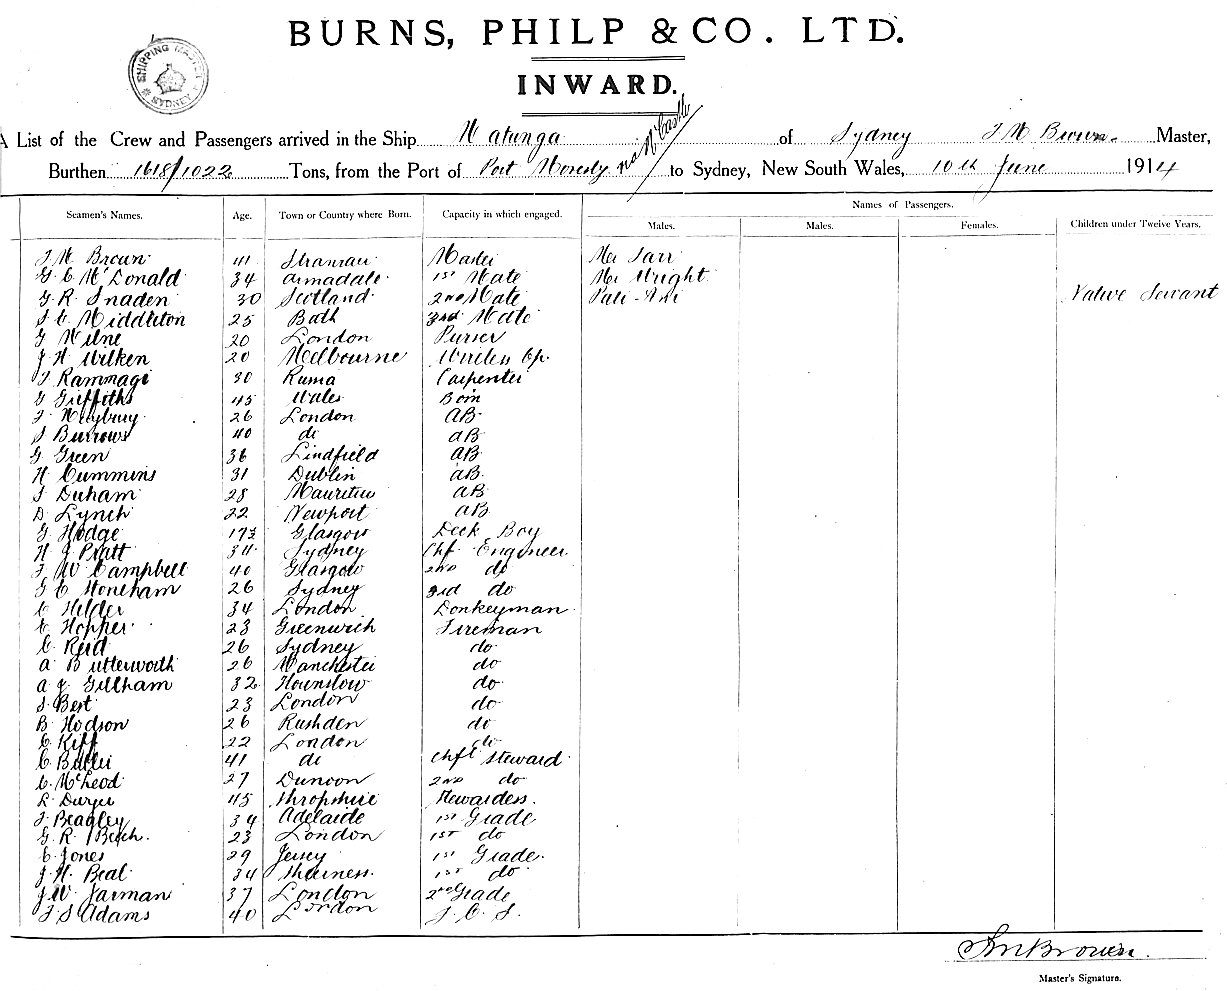 BURNS, PHILP & CO. LTD.
SHIPPING MASTER SYDNEY
INWARD.
A List of the Crew and Passengers arrived in the Ship Matunga of Sydney Master,
Burthen 1618/1022 Tons, from the Port of Port Moresby via N'Castle to Sydney, New South Wales, 10th June 1914
Names of Passengers.
Seamen's Names. Age. Town or Country where Born. Capacity in which engaged. Males. Males. Females. Children under Twelve Years.
Brown 41 Master Mr
G C McDonald 34 Armadale 1st Mate Mr Wright
G R Snaden 30 Scotland 2nd Mate Native Servant
Middleton 25 Bath 3rd Mate
G Milne 20 London Purser
J H Wilken 20 Melbourne Wireless Op.
30 Carpenter
G Griffiths 45 Wales Bosn
26 London AB
S Burrows 40 do AB
G Green 36 Lindfield AB
H Cummins 31 Dublin AB
28 Mauritius AB
D Lynch 22 Newport AB
G Hodge 17½ Glasgow Deck Boy
H J Pratt 34 Sydney Chf Engineer
Campbell 40 Glasgow 2nd do
G C Stoneham 26 Sydney 3rd do
C Hilder 34 London Donkeyman
C Hopper 23 Greenwich Fireman
C Reid 26 Sydney do
A Butterworth 26 Manchester do
A J Gillham 32 Hounslow do
Best 23 London do
B Hodson 26 Rushden do
C Kiff 22 London do
C Butler 41 do Chf Steward
C McLeod 27 Dunoon 2nd do
45 Shropshire Stewardess.
Beagley 34 Adelaide 1st Grade
G. R. Beech. 23 London 1st do
C Jones 29 Jersey 1st Grade.
J. H. Beal 34 Sheerness. 1st do
J W Jarman 37 London 2nd Grade
Adams 40 London
Master's Signature.